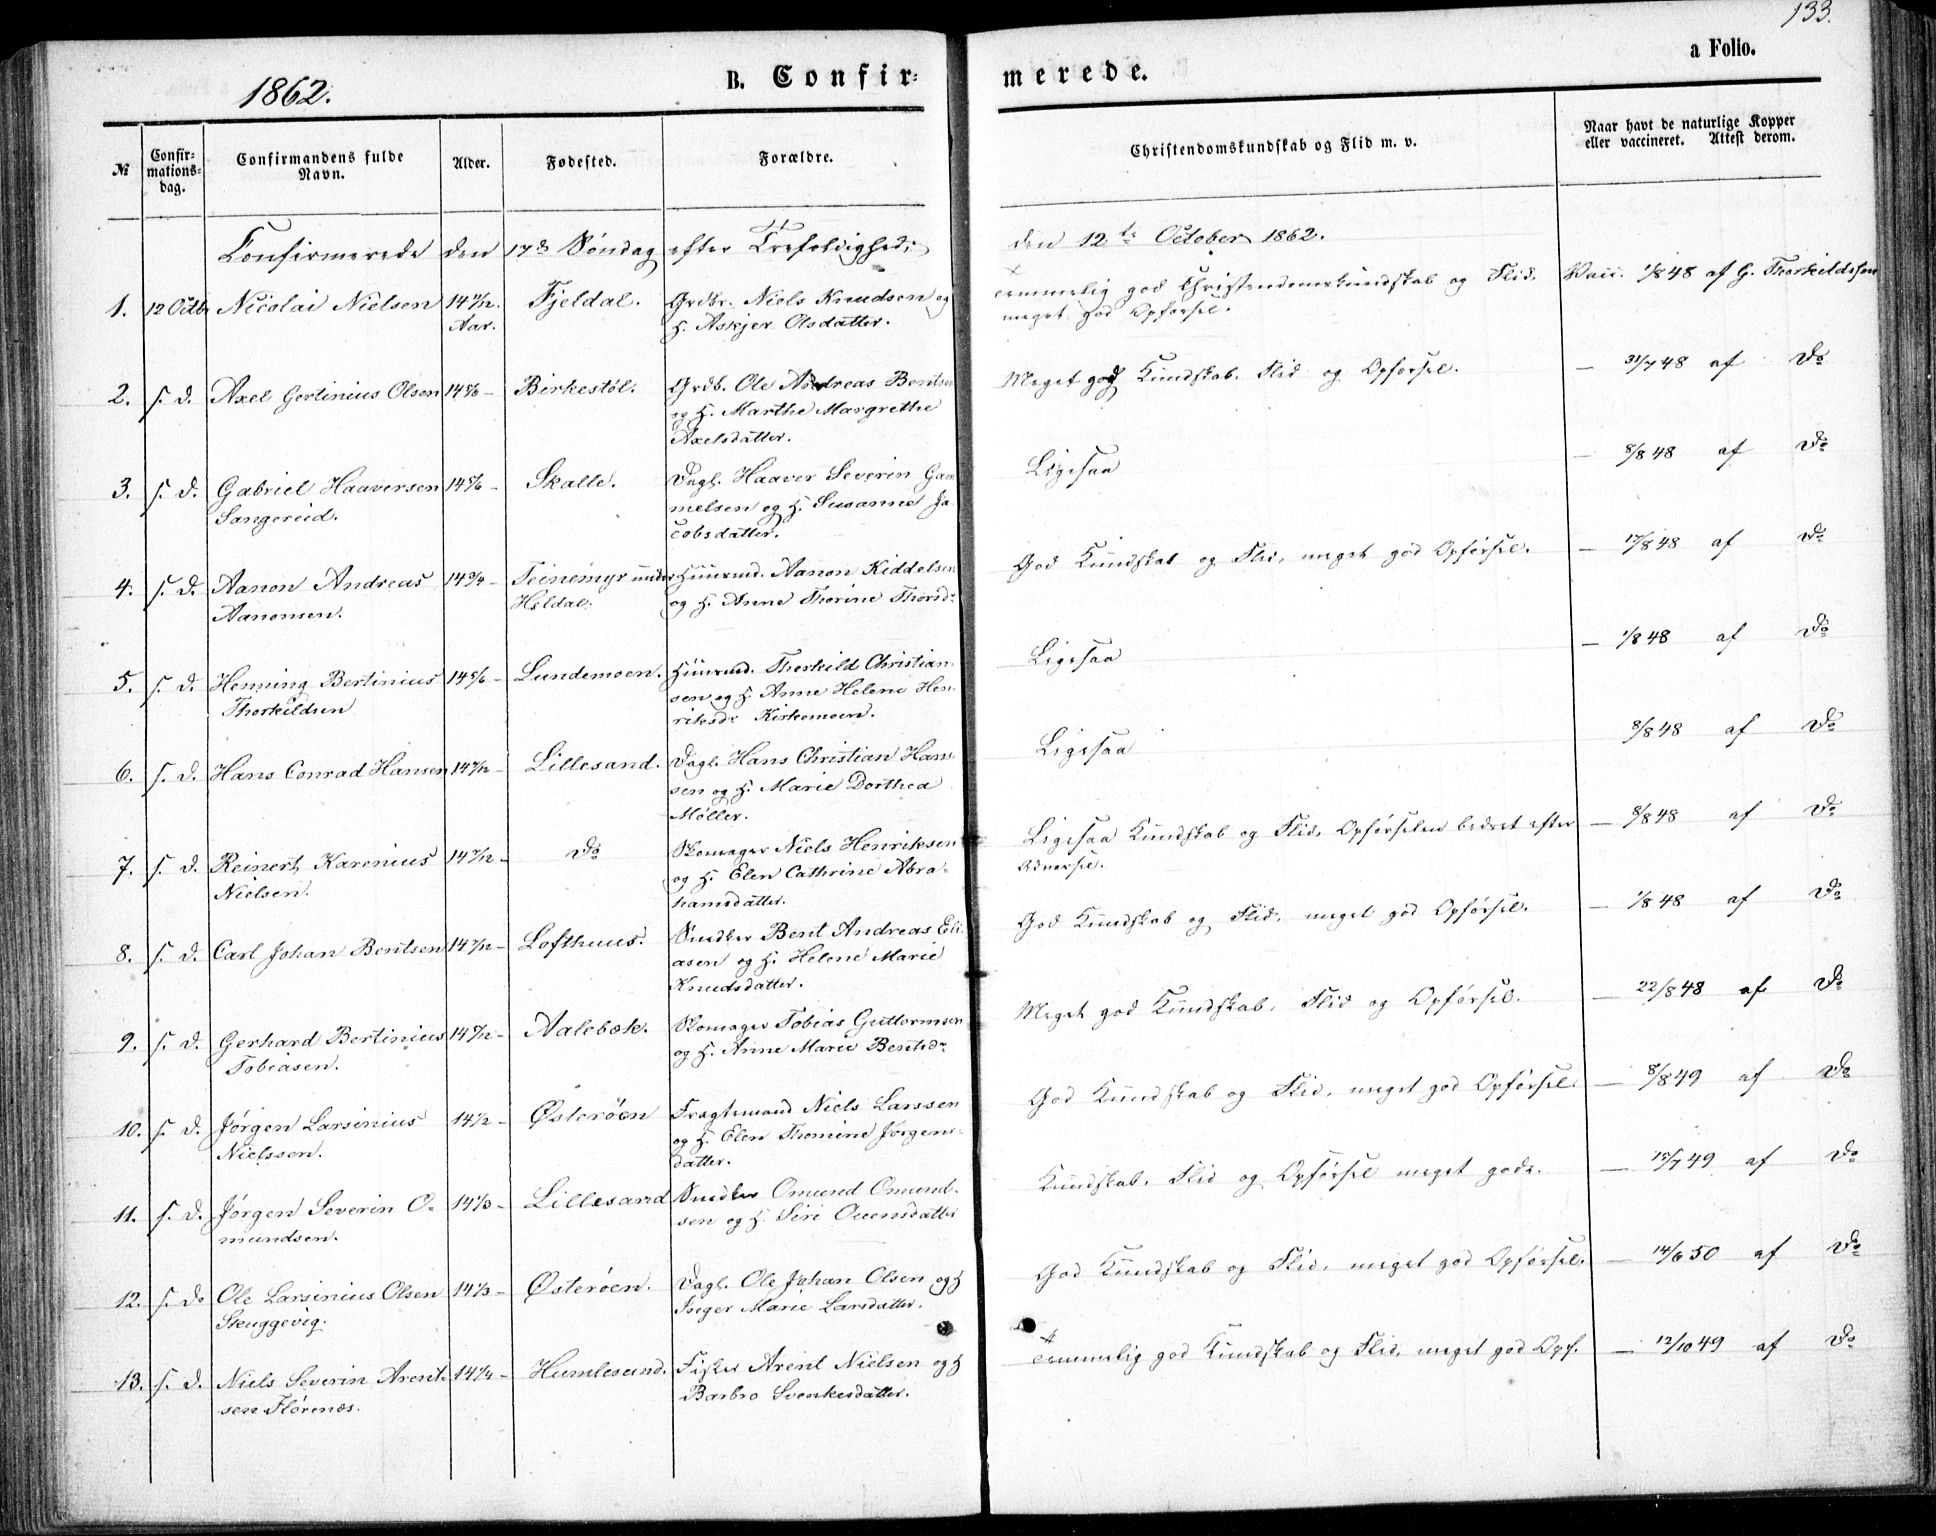 133.
1862.
B. Confir-
merede.
a Folio.
№
Confir-
mations-
dag.
Confirmandens fulde
Navn.
Alder.
Fødested.
Forældre.
Christendomskundskab og Flid m. v.
Naar havt de naturlige Kopper
eller vaccineret. Attest derom.
Confirmerede den 17de Søndag efter Trefoldighed,
den 12te October 1862.
1. 12 Octb. Nicolai Nielsen 14 7/12 Aar. Fjeldal. Grdbr. Niels Knudsen og
H. Askjer Olsdatter.
Temmelig god Christendomskundskab og Flid,
meget god Opførsel.
Vacc. 1/8 48 af G. Thorkildsen
2. s. D. Axel Gertinius Olsen 14 5/6 - Birkestøl. Grdb. Ole Andreas Bentsen
og H. Marthe Margrethe
Axelsdatter.
Meget god Kundskab, Flid og Opførsel. — 31/7 48 af Do
3. s. D. Gabriel Haaversen
Sangereid.
14 5/6 - Skalle. Dagl. Haaver Severin Gam
melsen og H. Susanne Ja
cobsdatter.
Ligesaa — 8/8 48 af Do
4. s. D. Aanon Andreas
Aanonsen.
14 3/4 - Teinemyr under
Heldal.
Huusmd. Aanon Kiddelsen
og H. Anne Thorine Thorsdr
God Kundskab og Flid, meget god Opførsel. — 17/8 48 af Do
5. s. D. Henning Bertinius
Thorkildsen
14 5/6 - Lundemoen. Huusmd. Thorkild Christian-
sen og H. Anne Helene Hen-
riksdr Kirkemoen.
Ligesaa — 1/8 48 af Do
6. s. D. Hans Conrad Hansen 14 7/12 - Lillesand. Dagl. Hans Christian Han-
sen og H. Marie Dorthea
Møller.
Ligesaa 8/8 48 af Do
7. s. D. Reinert Karenius
Nielsen.
14 7/12 - Do Skomager Niels Henriksen
og H. Elen Cathrine Abra-
hamsdatter.
Ligesaa Kundskab og Flid, Opførselen bedret efter
Advarsel.
— 8/8 48 af Do
8. s. D. Carl Johan Bentsen 14 7/12 - Lofthuus. Snedker Bent Andreas Eli-
asen og H. Helene Marie
Knudsdatter.
God Kundskab og Flid, meget god Opførsel. — 1/8 48 af Do
9. s. D. Gerhard Bertinius
Tobiasen.
14 7/12 - Aalebæk. Skomager Tobias Guttormsen
og H. Anne Marie Bentsdr
Meget god Kundskab, Flid og Opførsel. — 22/8 48 af Do
10. s. D. Jørgen Larsinius
Nielssen.
14 1/2 - Østerøen Fragtemand Niels Larssen
og H. Elen Thomine Jørgens-
datter.
God Kundskab og Flid, meget god Opførsel. — 8/8 49 af Do
11. s. D. Jørgen Severin O-
mundsen.
14 1/3 - Lillesand Snedker Omund Omund-
sen og H. Siri Ouensdatter
Kundskab, Flid og Opførsel meget gode. — 15/7 49 af Do
12. s. Do Ole Larsinius Olsen
Skuggevig.
14 1/3 - Østerøen. Dagl. Ole Johan Olsen og H
Inger Marie Larsdatter.
God Kundskab og Flid, meget god Opførsel. — 14/6 50 af Do
13. s. D. Niels Severin Arent-
sen Flørenæs.
14 1/4 - Humlesund. Fisker Arent Nielsen og H
Barbro Svenkesdatter.
Temmelig god Kundskab og Flid, meget god Opf. — 12/10 49 af Do